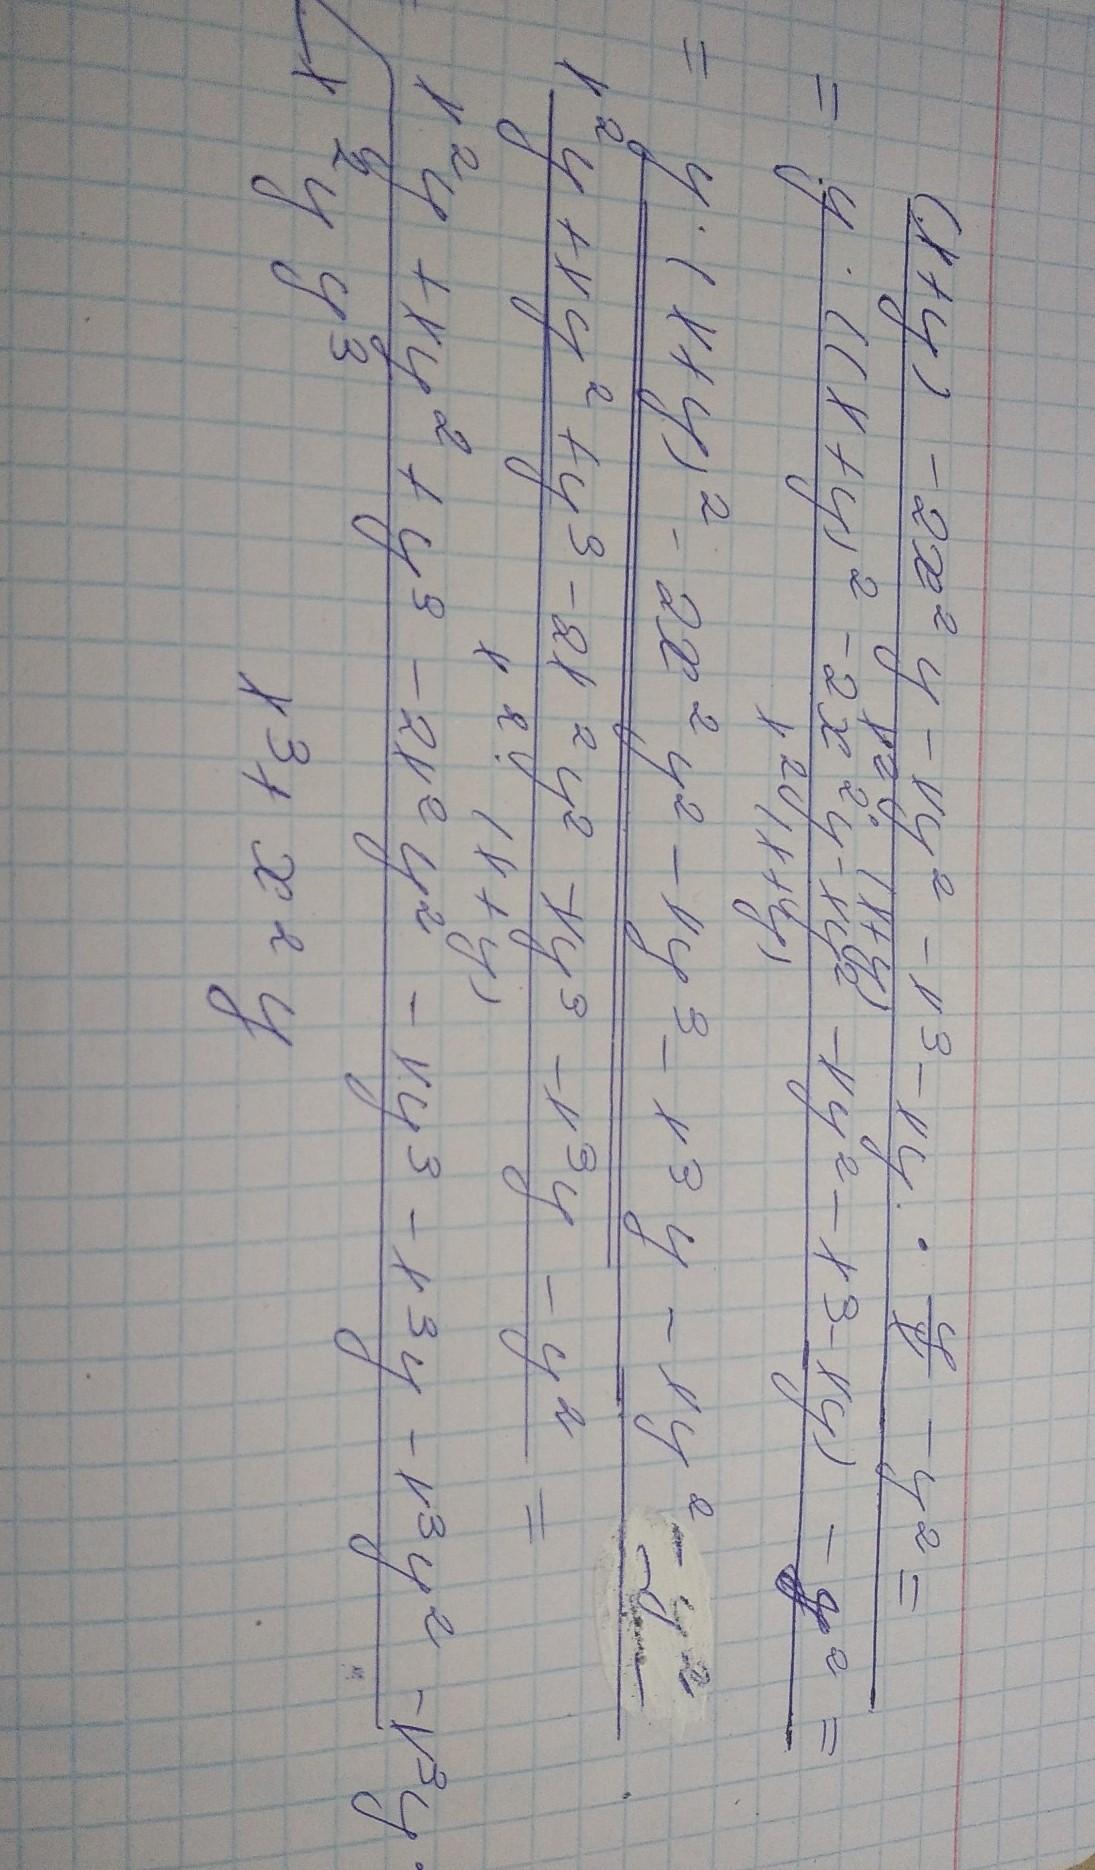 (x+y) -2x²y - xy² - x³ - xy · y/x - y² =
x²y · (x+y)
= y · ((x+y)² - 2x²y - xy² - xy² - x³ - xy) - y² =
x²y (x+y)
= y · (x+y)² - 2x²y² - xy³ - x³y - xy² - y²
x²y + xy² + y³ - 2x²y² - xy³ - x³y - y² =
x²y (x+y)
x²y + xy² + y³ - 2x²y² - xy³ - x³y - x³y² - x³y
x²y y³
x³+ x²y